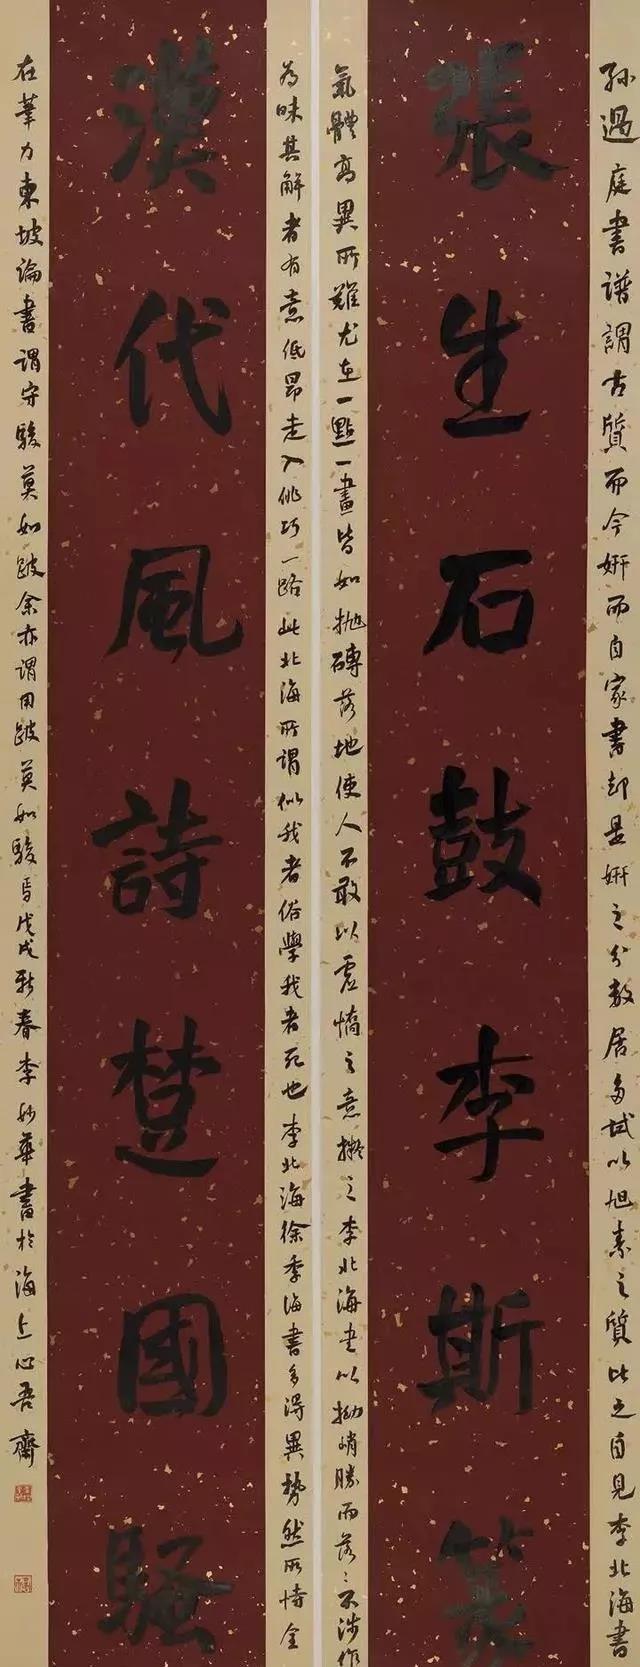 孫過庭書譜謂古質而今妍而自家書却是妍之分數居多試以旭素之質比之自見李北海書
張生石鼓李斯篆
氣體高異所難尤在一點一畫皆如抛磚落地使人不敢以虛憍之意擬之李北海書以拗峭勝而落〻不涉作
為昧其解者有意低昂走入佻巧一路此北海所謂似我者俗學我者死也李北海徐季海書多得異勢然所恃全
漢代風詩楚國騷
在筆力東坡論書謂守駿莫如跛余亦謂用跛莫如駿焉戊戌新春李妙華書於海上心吾齋